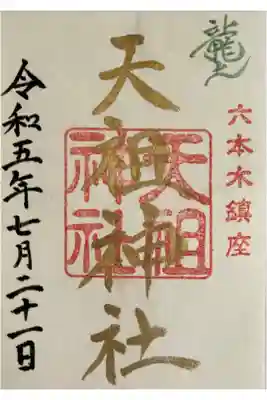 龍土
六本木鎮座
天祖神社
天祖神社
令和五年七月二十一日